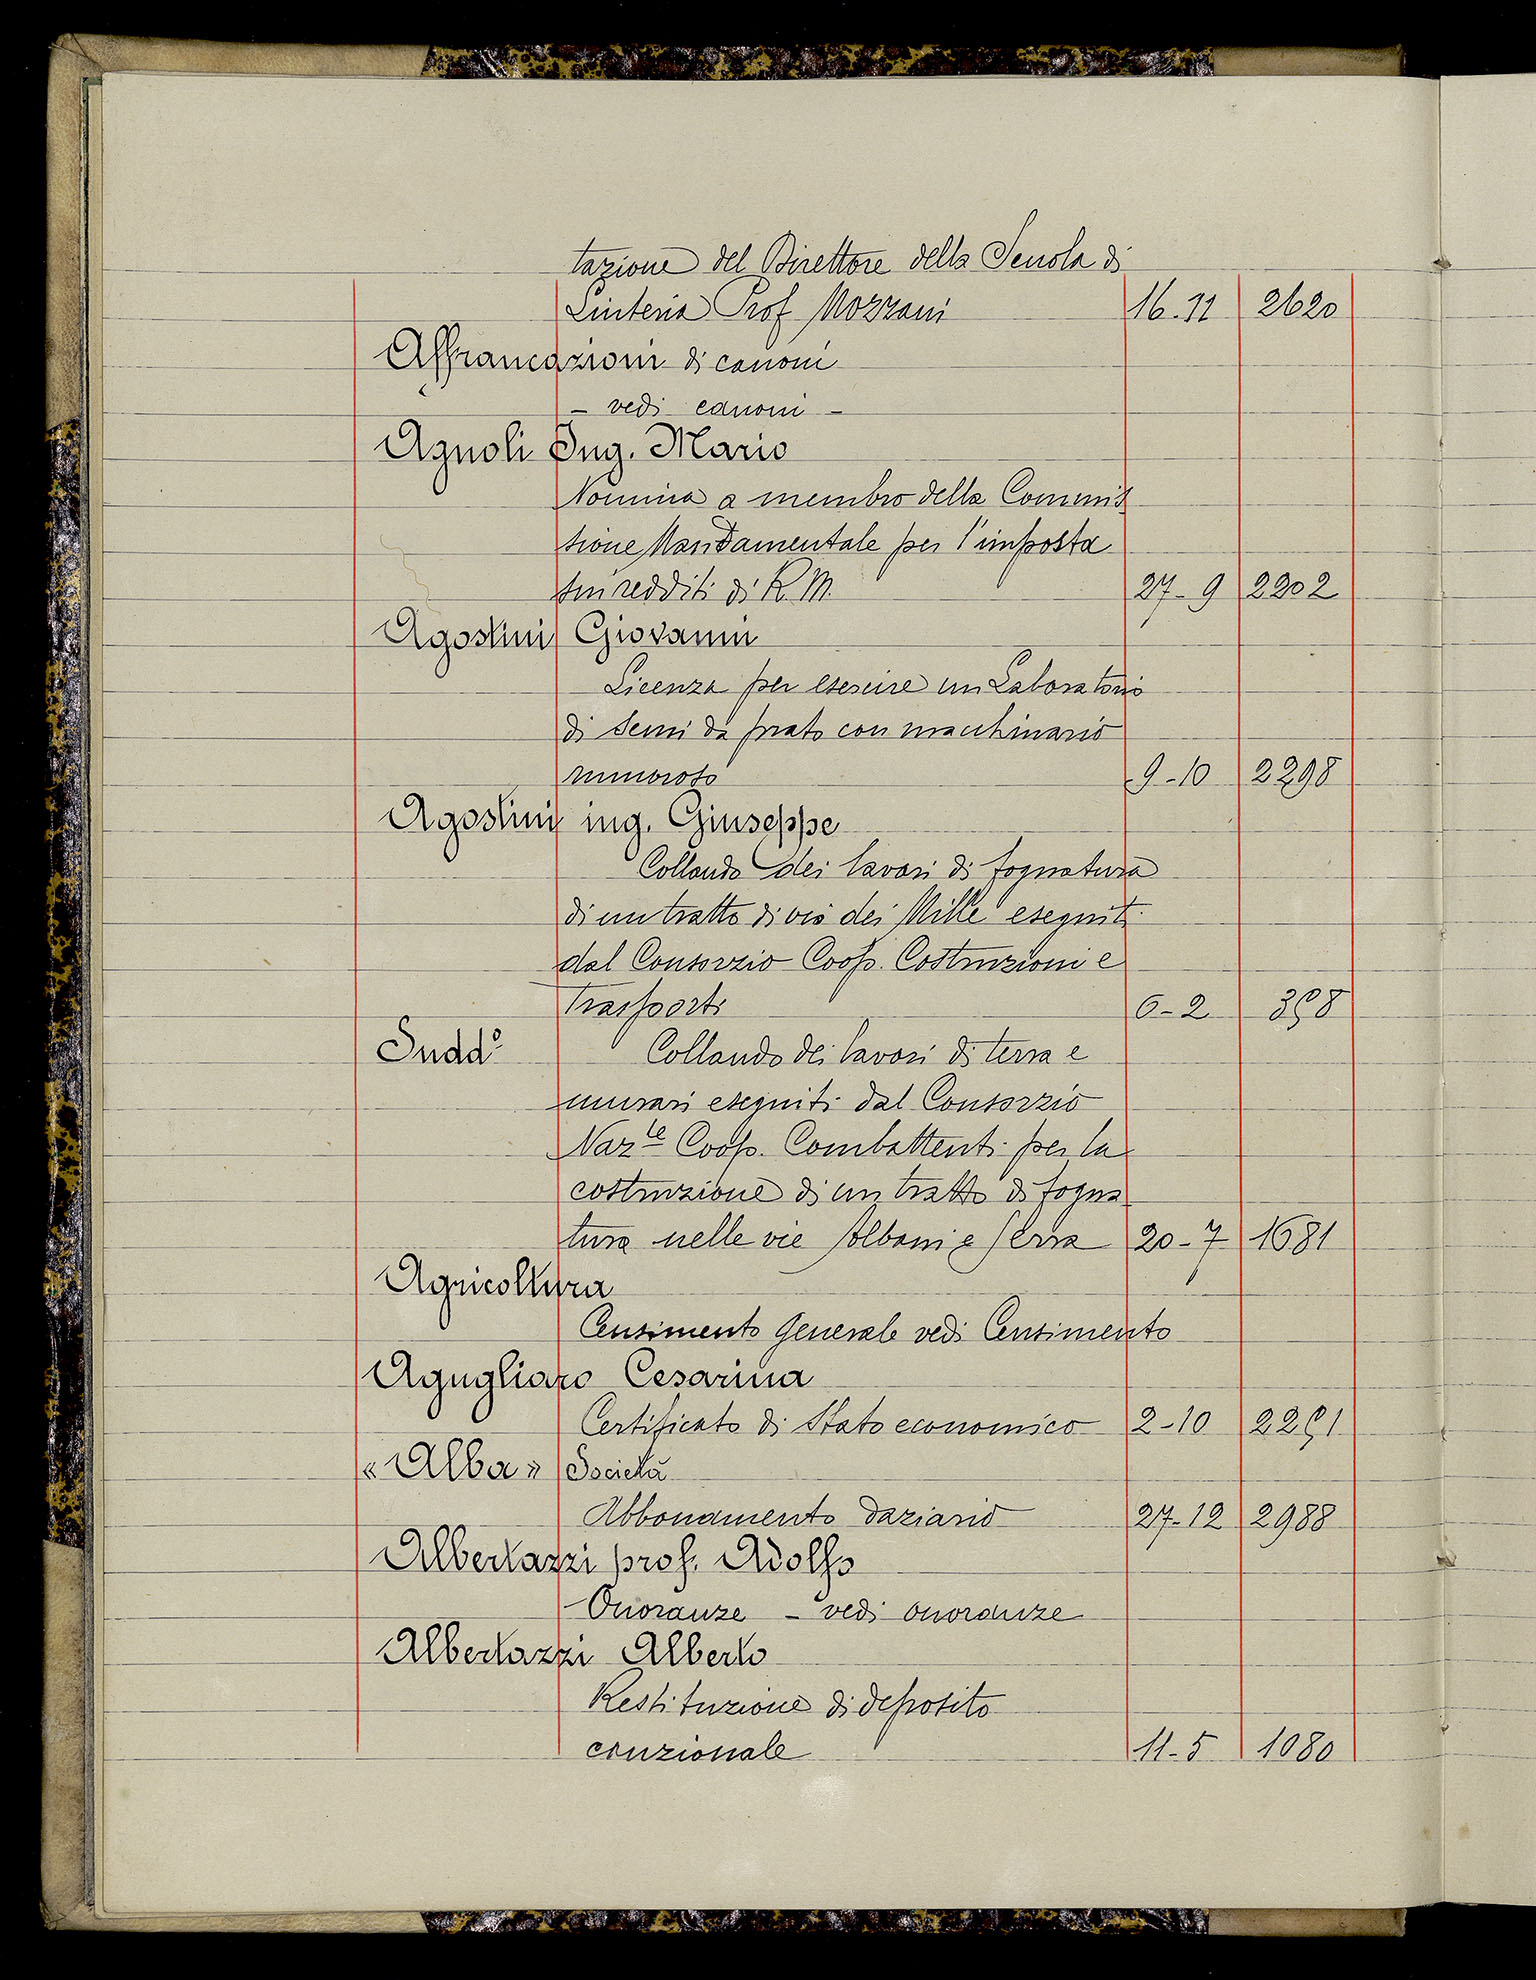 tazione del Direttore della Scuola di
Liuteria Prof Mozzani 16-11 2620
Affrancazioni di canoni
- vedi canoni -
Agnoli Ing. Mario
Nomina a membro della Commis
sione Mandamentale per l'imposta
sui redditi di R. M. 27-9 2202
Agostini Giovanni
Licenza per esercire un Laboratorio
di semi da prato con macchinario
rumoroso 9-10 2298
Agostini ing. Giuseppe
Collaudo dei lavori di fognatura
di un tratto di via dei Mille eseguiti
dal Consorzio Coop. Costruzioni e
Trasporti 6-2 358
Suddº Collaudo dei lavori di terra e
murari eseguiti dal Consorzio
Naz.le Coop. Combattenti per la
costruzione di un tratto di fogna
tura nelle vie Albani e Serra 20-7 1681
Agricoltura
Censimento Generale vedi Censimento
Agugliaro Cesarina
Certificato di Stato economico 2-10 2251
«Alba» Società
Abbonamento daziario 27-12 2988
Albertazzi prof. Adolfo
Onoranze - vedi onoranze
Albertazzi Alberto
Restituzione di deposito
cauzionale 11-5 1080